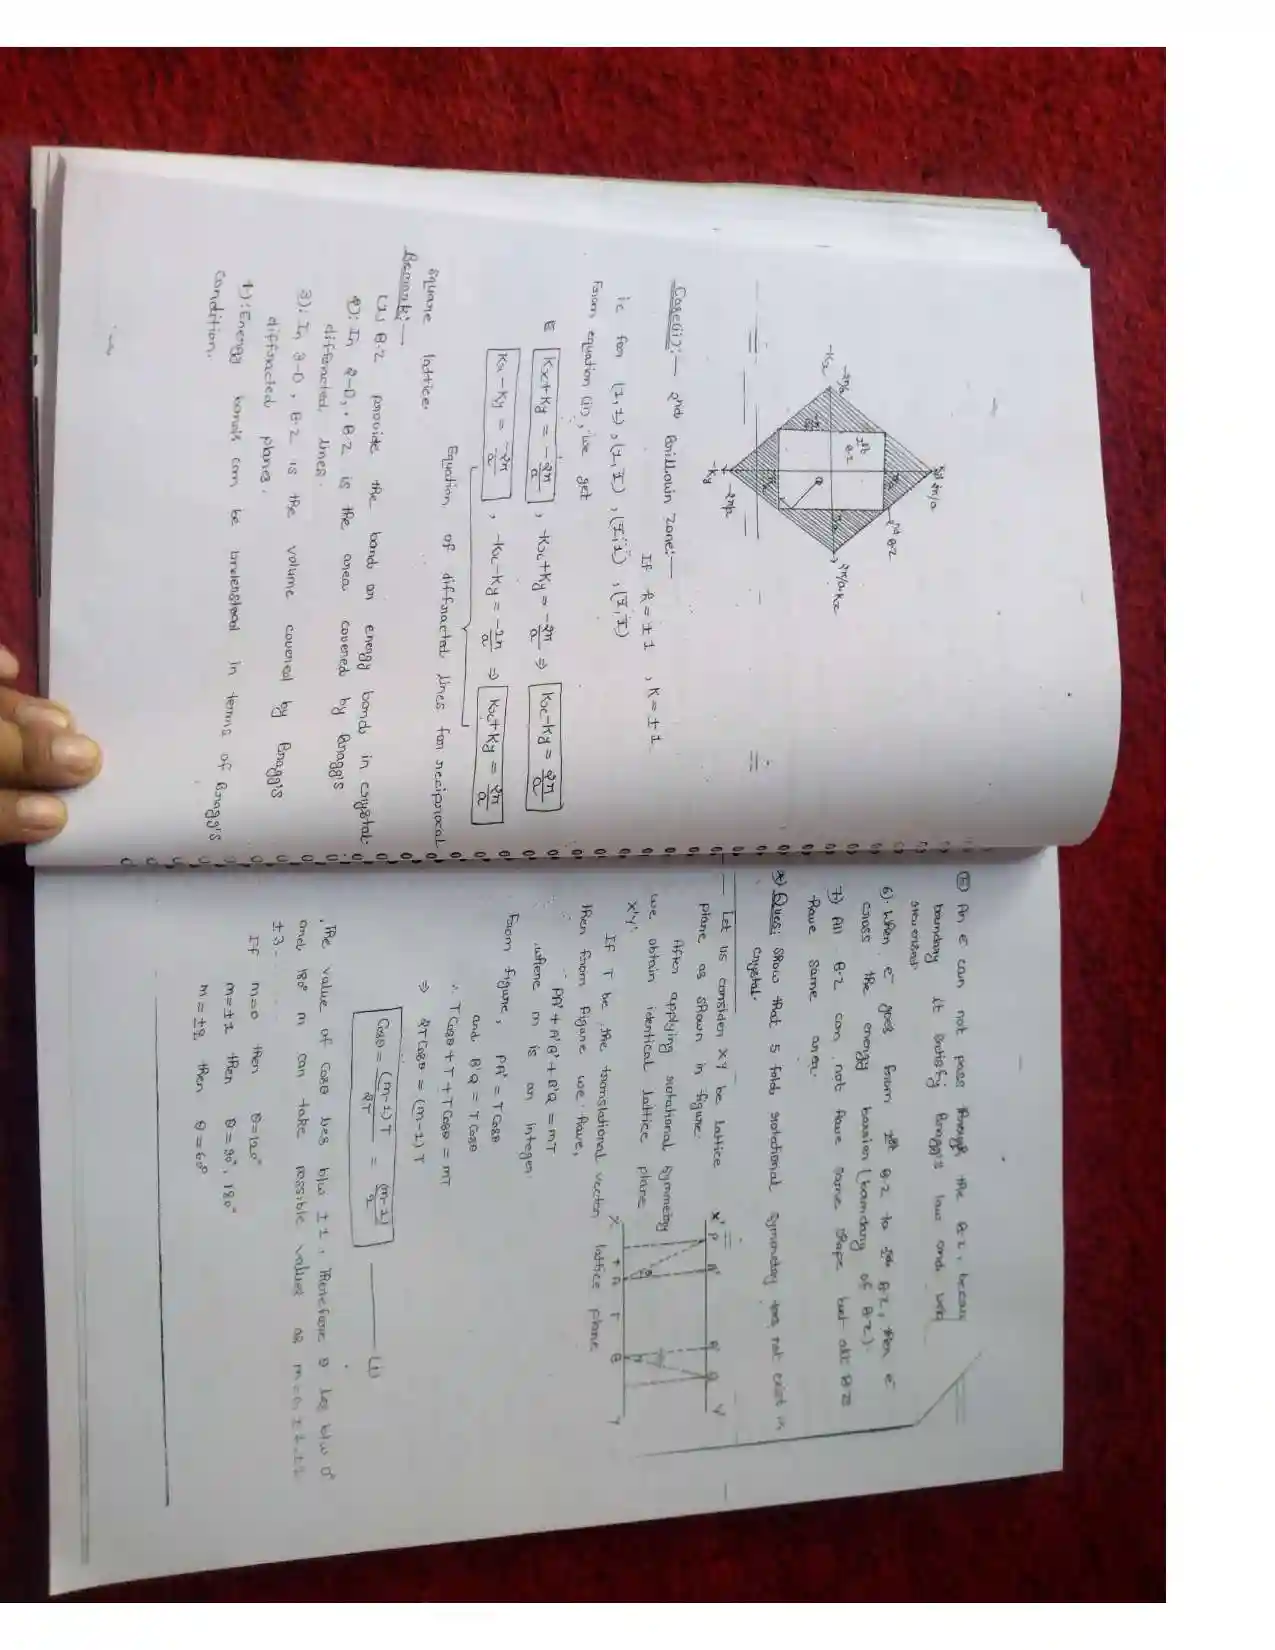 -Kx
-2π/a
1st
B-Z
3rd 2π/a
2nd B-Z
2π/a Kx
-Ky
-2π/a
Case(ii):— 2nd Brillouin Zone:—
If h = ±1 , K = ±1
ie for (1,1), (1,1̄), (1̄,1), (1̄,1̄)
From equation (ii), we get
E Kx+Ky = -2π/a , -Kx+Ky = -2π/a ⇒ Kx-Ky = 2π/a
Kx-Ky = -2π/a , -Kx-Ky = -2π/a ⇒ Kx+Ky = 2π/a
Equation of diffracted lines for reciprocal
square lattice.
Remark:—
(1) B-Z provide the band on energy bands in crystal.
2): In 2-D, B-Z is the area covered by Bragg's
diffracted lines.
3): In 3-D, B-Z is the volume covered by Bragg's
diffracted planes.
4): Energy bands can be in terms of Bragg's
condition.
(5) An e⁻ can not pass through the B-Z, becaus
boundary it satisfy Bragg's law and
6). When e⁻ goes from 1st B-Z to B-Z, then e⁻
cross the energy (boundary of B-Z).
7) All B-Z can not have same shape but all B-Z
have same area.
*) Ques: Show that 5 fold rotational symmetry does not exist in
crystal.
— Let us consider XY be lattice
plane as shown in figure.
After applying rotational symmetry
we obtain identical lattice plane
X'Y'.
X' P A' B' Q Y'
X A T B Y
If T be the translational vector lattice plane
then from figure we have,
PA' + A'B' + B'Q = mT
where m is an integer.
From figure, PA' = T Cosθ
and B'Q = T Cosθ
∴ T Cosθ + T + T Cosθ = mT
⇒ 2T Cosθ = (m-1)T
Cosθ = (m-1)T/2T = (m-1)/2 ——— (1)
The value of Cosθ lies b/w ±1, Therefore θ lies b/w 0°
and 180° m can take possible values as m = 0, ±1, ±2
±3 -
If m=0 then θ=120°
m=±1 then θ=90°, 180°
m=±2 then θ=60°